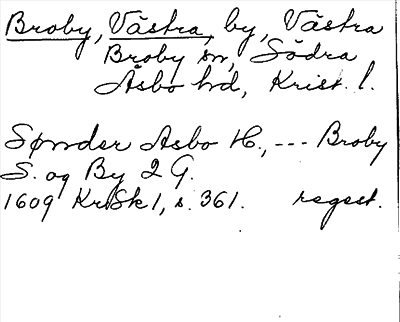 Broby, Västra, by, Västra
Broby sn, Södra
Åsbo hd, Krist. l.
Sønder Asbo H., --- Broby
S. og By 2 G.
1609 KrSk 1, s. 361. regest.